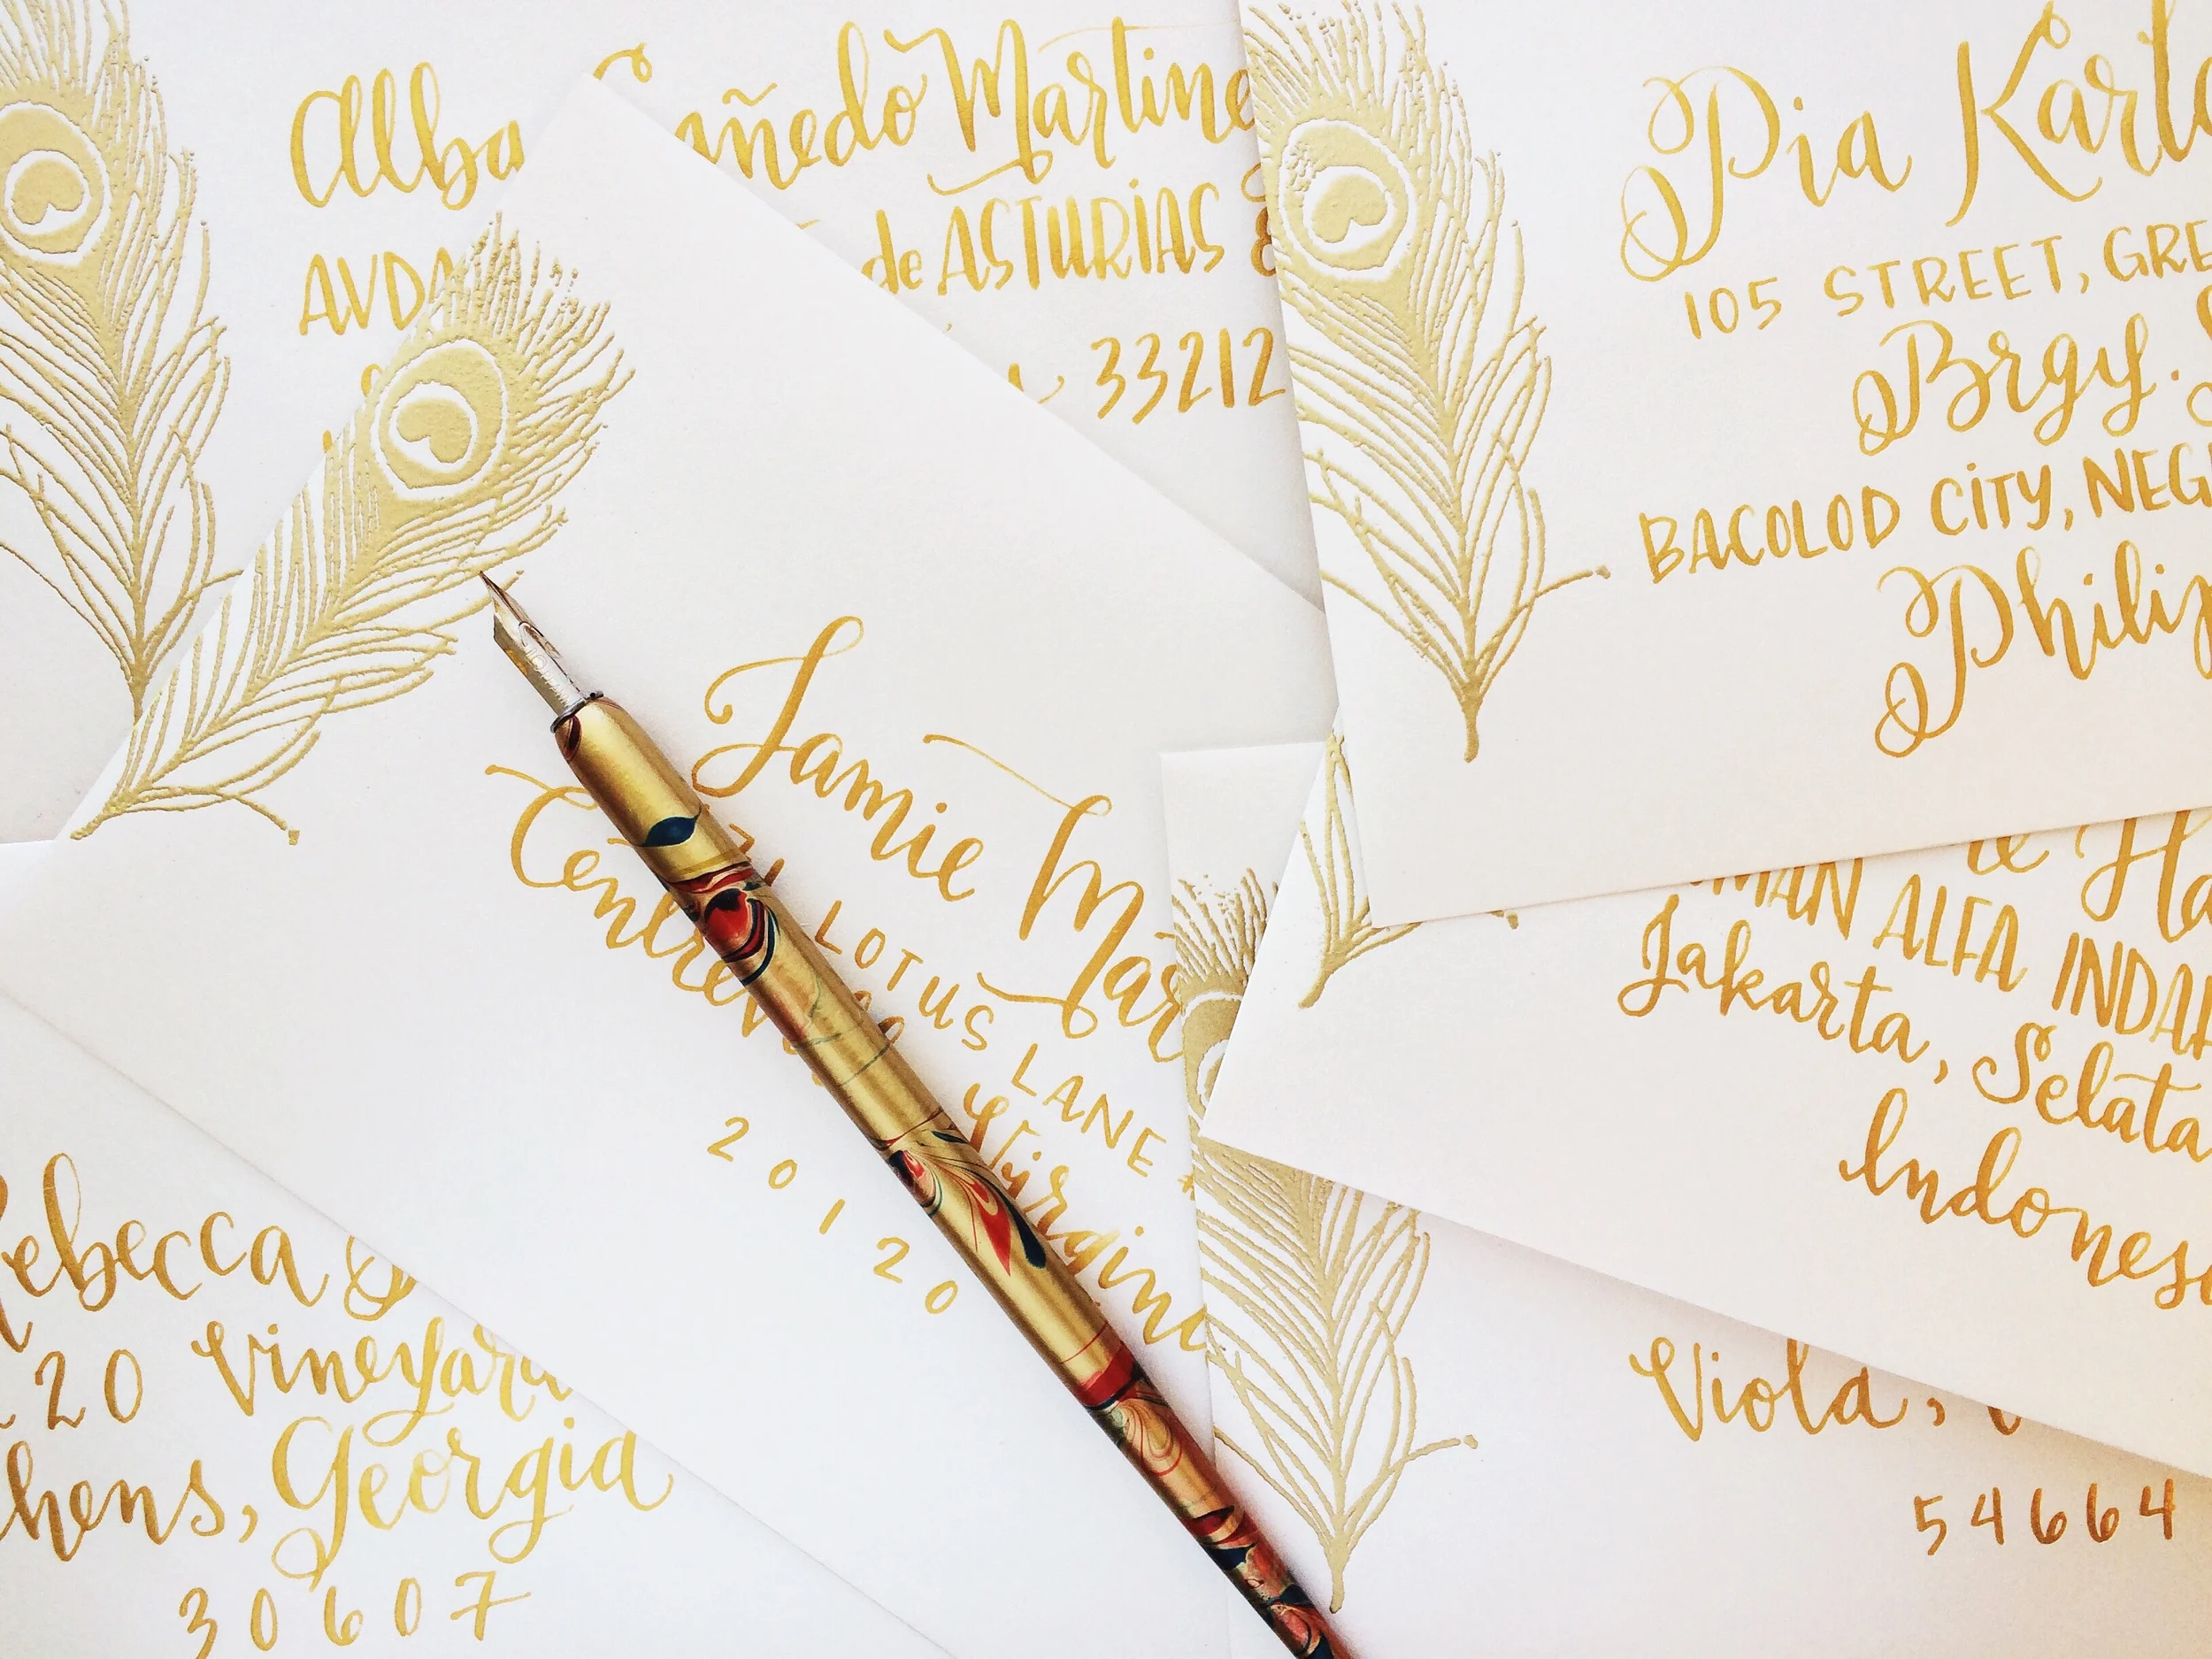 Alba Cañedo Martine
AVDA de ASTURIAS
33212
Pia Karl
105 STREET, GRE
Brgy.
BACOLOD CITY, NEG
Philip
Jamie Mar
LOTUS LANE #
Centrev Virgini
20120
MAN ALFA INDAH
Jakarta, Selata
Indones
Rebecca
220 Vineyard
thens, Georgia
30607
Viola,
54664